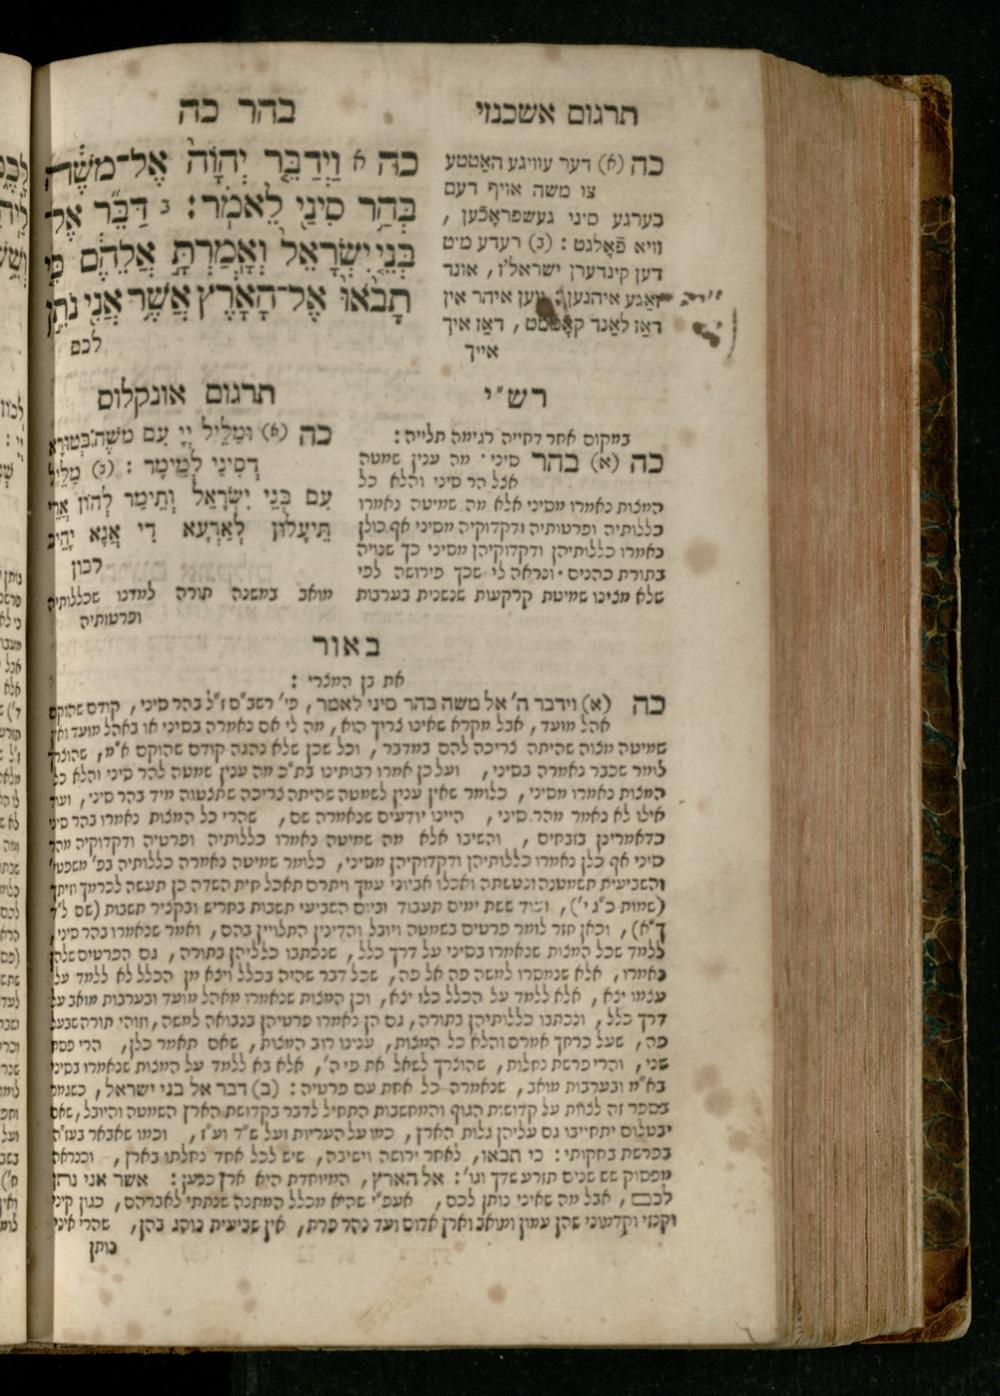 תרגום אשכנזי
בהר כה
כה (א) דער עוויגע האַטטע
צו משה אויף דעם
בערגע סיני געשפראָכען ,
וויא פֿאָלגט : (ב) רעדע מיט
דען קינדערן ישראל'ז , אונד
זאַגע איהנען : ווען איהר אין
דאַז לאַנד קאָממט , דאַז איך
אייך
כה א וַיְדַבֵּר יְהוָֹה אֶל־מֹשֶׁה
בְּהַר סִינַי לֵאמֹר : ב דַּבֵּר אֶל־
בְּנֵי יִשְׂרָאֵל וְאָמַרְתָּ אֲלֵהֶם כִּי
תָבֹאוּ אֶל־הָאָרֶץ אֲשֶׁר אֲנִי נֹתֵן
לכם
רש״י
במקום אחר דחייה רגימה תלייה :
כה (א) בהר סיני · מה ענין שמטה
אצל הר סיני והלא כל
המצות נאמרו מסיני אלא מה שמיטה נאמרו
כללותיה ופרטותיה ודקדוקיה מסיני אף כולן
נאמרו כללותיהן ודקדוקיהן מסיני כך שנויה
בתורת כהנים · ונראה לי שכך פירושה לפי
שלא מצינו שמיטת קרקעות שנשנית בערבות
מואב במשנה תורה למדנו שכללותיה
ופרטותיה
תרגום אונקלוס
כה (א) וּמַלֵּיל יְיָ עִם מֹשֶׁה בְּטוּרָא
דְסִינַי לְמֵימָר : (ב) מַלֵּיל
עִם בְּנֵי יִשְׂרָאֵל וְתֵימַר לְהוֹן אֲרֵי
תֵּיעֲלוּן לְאַרְעָא דִי אֲנָא יָהֵיב
לכון
באור
את בן המצרי :
כה (א) וידבר ה' אל משה בהר סיני לאמר , פי' רשב״ם ז״ל בהר סיני , קודם שהוקם
אהל מועד , אבל מקרא שאינו צריך הוא , מה לי אם נאמרה בסיני או באהל מועד ואין
שמיטה מצוה שהיתה צריכה להם במדבר , וכל שכן שלא נהגה קודם שהוקם א״מ , שהוצרך
לומר שכבר נאמרה בסיני , ועל כן אמרו רבותינו בת״כ מה ענין שמטה להר סיני והלא כל
המצות נאמרו מסיני , כלומר שאין ענין לשמטה שהיתה צריכה שתצטוה מיד בהר סיני , ועוד
אילו לא נאמר מהר סיני , היינו יודעים שנאמרה שם , שהרי כל המצות נאמרו בהר סיני
כדאמרינן בזבחים , והשיבו אלא מה שמיטה נאמרו כללותיה ופרטיה ודקדוקיה מהר
סיני אף כלן נאמרו כללותיהן ודקדוקיהן מסיני , כלומר שמיטה נאמרה כללותיה בפ' משפטי'
והשביעית תשמטנה ונטשתה ואכלו אביוני עמך ויתרם תאכל חית השדה כן תעשה לכרמך וזיתך
(שמות כ״ג י') , ועוד ששת ימים תעבוד וביום השביעי תשבות בחריש ובקציר תשבות (שם ל״ד
כ״א) , וכאן חזר לומר פרטים בשמטה ויובל והדינין התלויין בהם , ואמר שנאמרו בהר סיני ,
ללמד שכל המצות שנאמרו בסיני על דרך כלל , שנכתבו כלליהן בתורה , גם הפרטים שלהן
נאמרו , אלא שנמסרו למשה פה אל פה , שכל דבר שהיה בכלל ויצא מן הכלל לא ללמד על
עצמו יצא , אלא ללמד על הכלל כלו יצא , וכן המצות שנאמרו מאהל מועד ובערבות מואב על
דרך כלל , ונכתבו כללותיהן בתורה , גם הן נאמרו פרטיהן בנבואה למשה , וזוהי תורה שבעל
פה , שעל כרחך אמרם והלא כל המצות , ענינו רוב המצות , שאם תאמר כלן , הרי פסח
שני , והרי פרשת נחלות , שהוצרך לשאל את פי ה' , אלא בא ללמד על המצות שנאמרו בסיני
בא״מ ובערבות מואב , שנאמרה כל אחת עם פרטיה : (ב) דבר אל בני ישראל , כשגמר
בספר זה לצוות על קדושת הגוף והמחשבות התחיל לדבר בקדושת הארץ השמטה והיובל , שאם
יבטלום יתחייבו גם עליהן גלות הארץ , כמו על העריות ועל ש״ד וע״ז , וכמו שאבאר בעז״ה
בפרשת בחקותי : כי תבאו , לאחר ירושה וישיבה , שיש לכל אחד נחלתו בארץ , וכנראה
מפסוק שש שנים תזרע שדך וגו' : אל הארץ , המיוחדת היא ארץ כנען : אשר אני נתן
לכם , אבל מה שאיני נותן לכם , אעפ״י שהיא מכלל המתנה שנתתי לאברהם , כגון קיני
וקנזי וקדמוני שהן עמון ומואב וארץ אדום ועד נהר פרת , אין שביעית נוהג בהן , שהרי איני
נותן